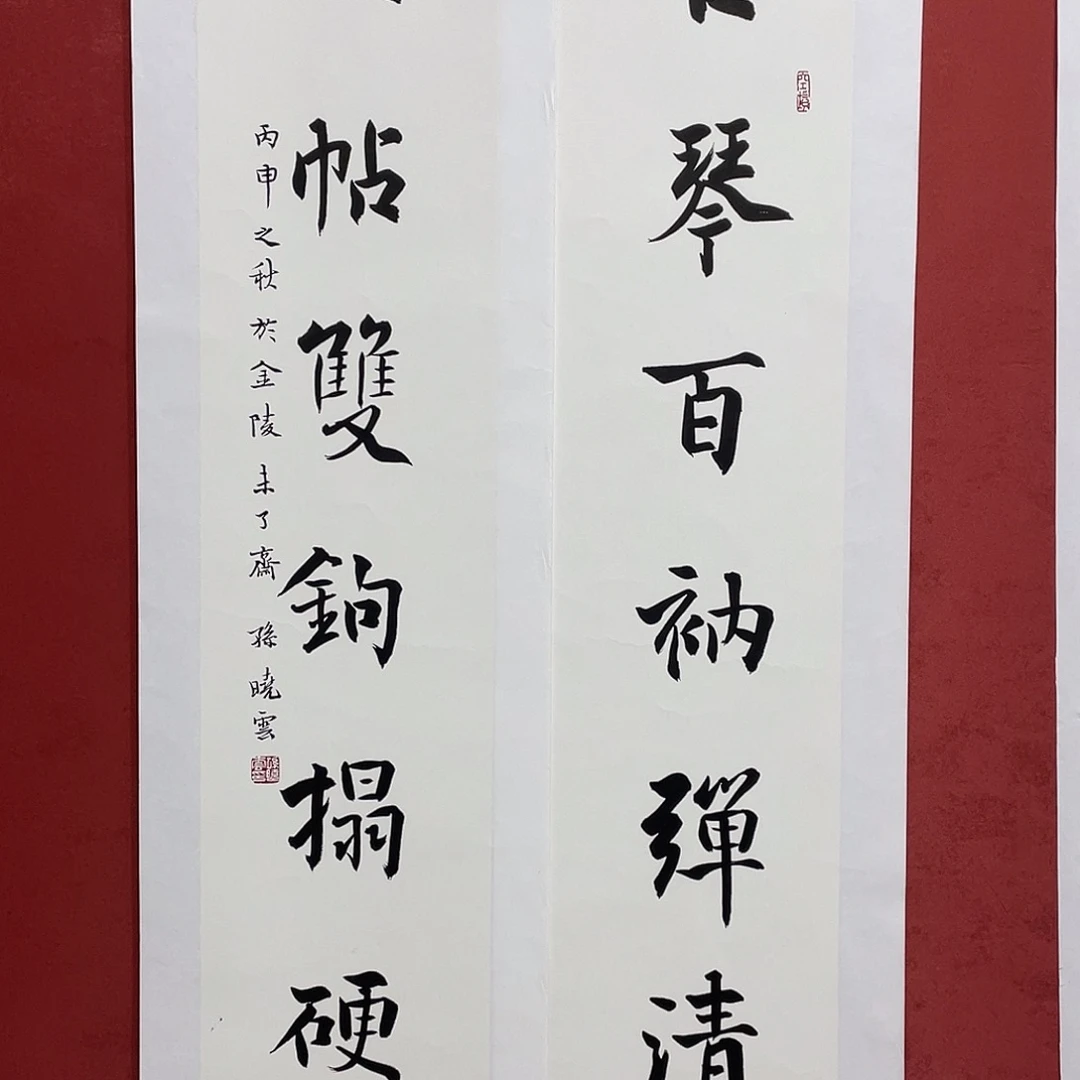 琴百衲彈清
帖雙鉤搨硬
丙申之秋於金陵未了齋 孫曉雲